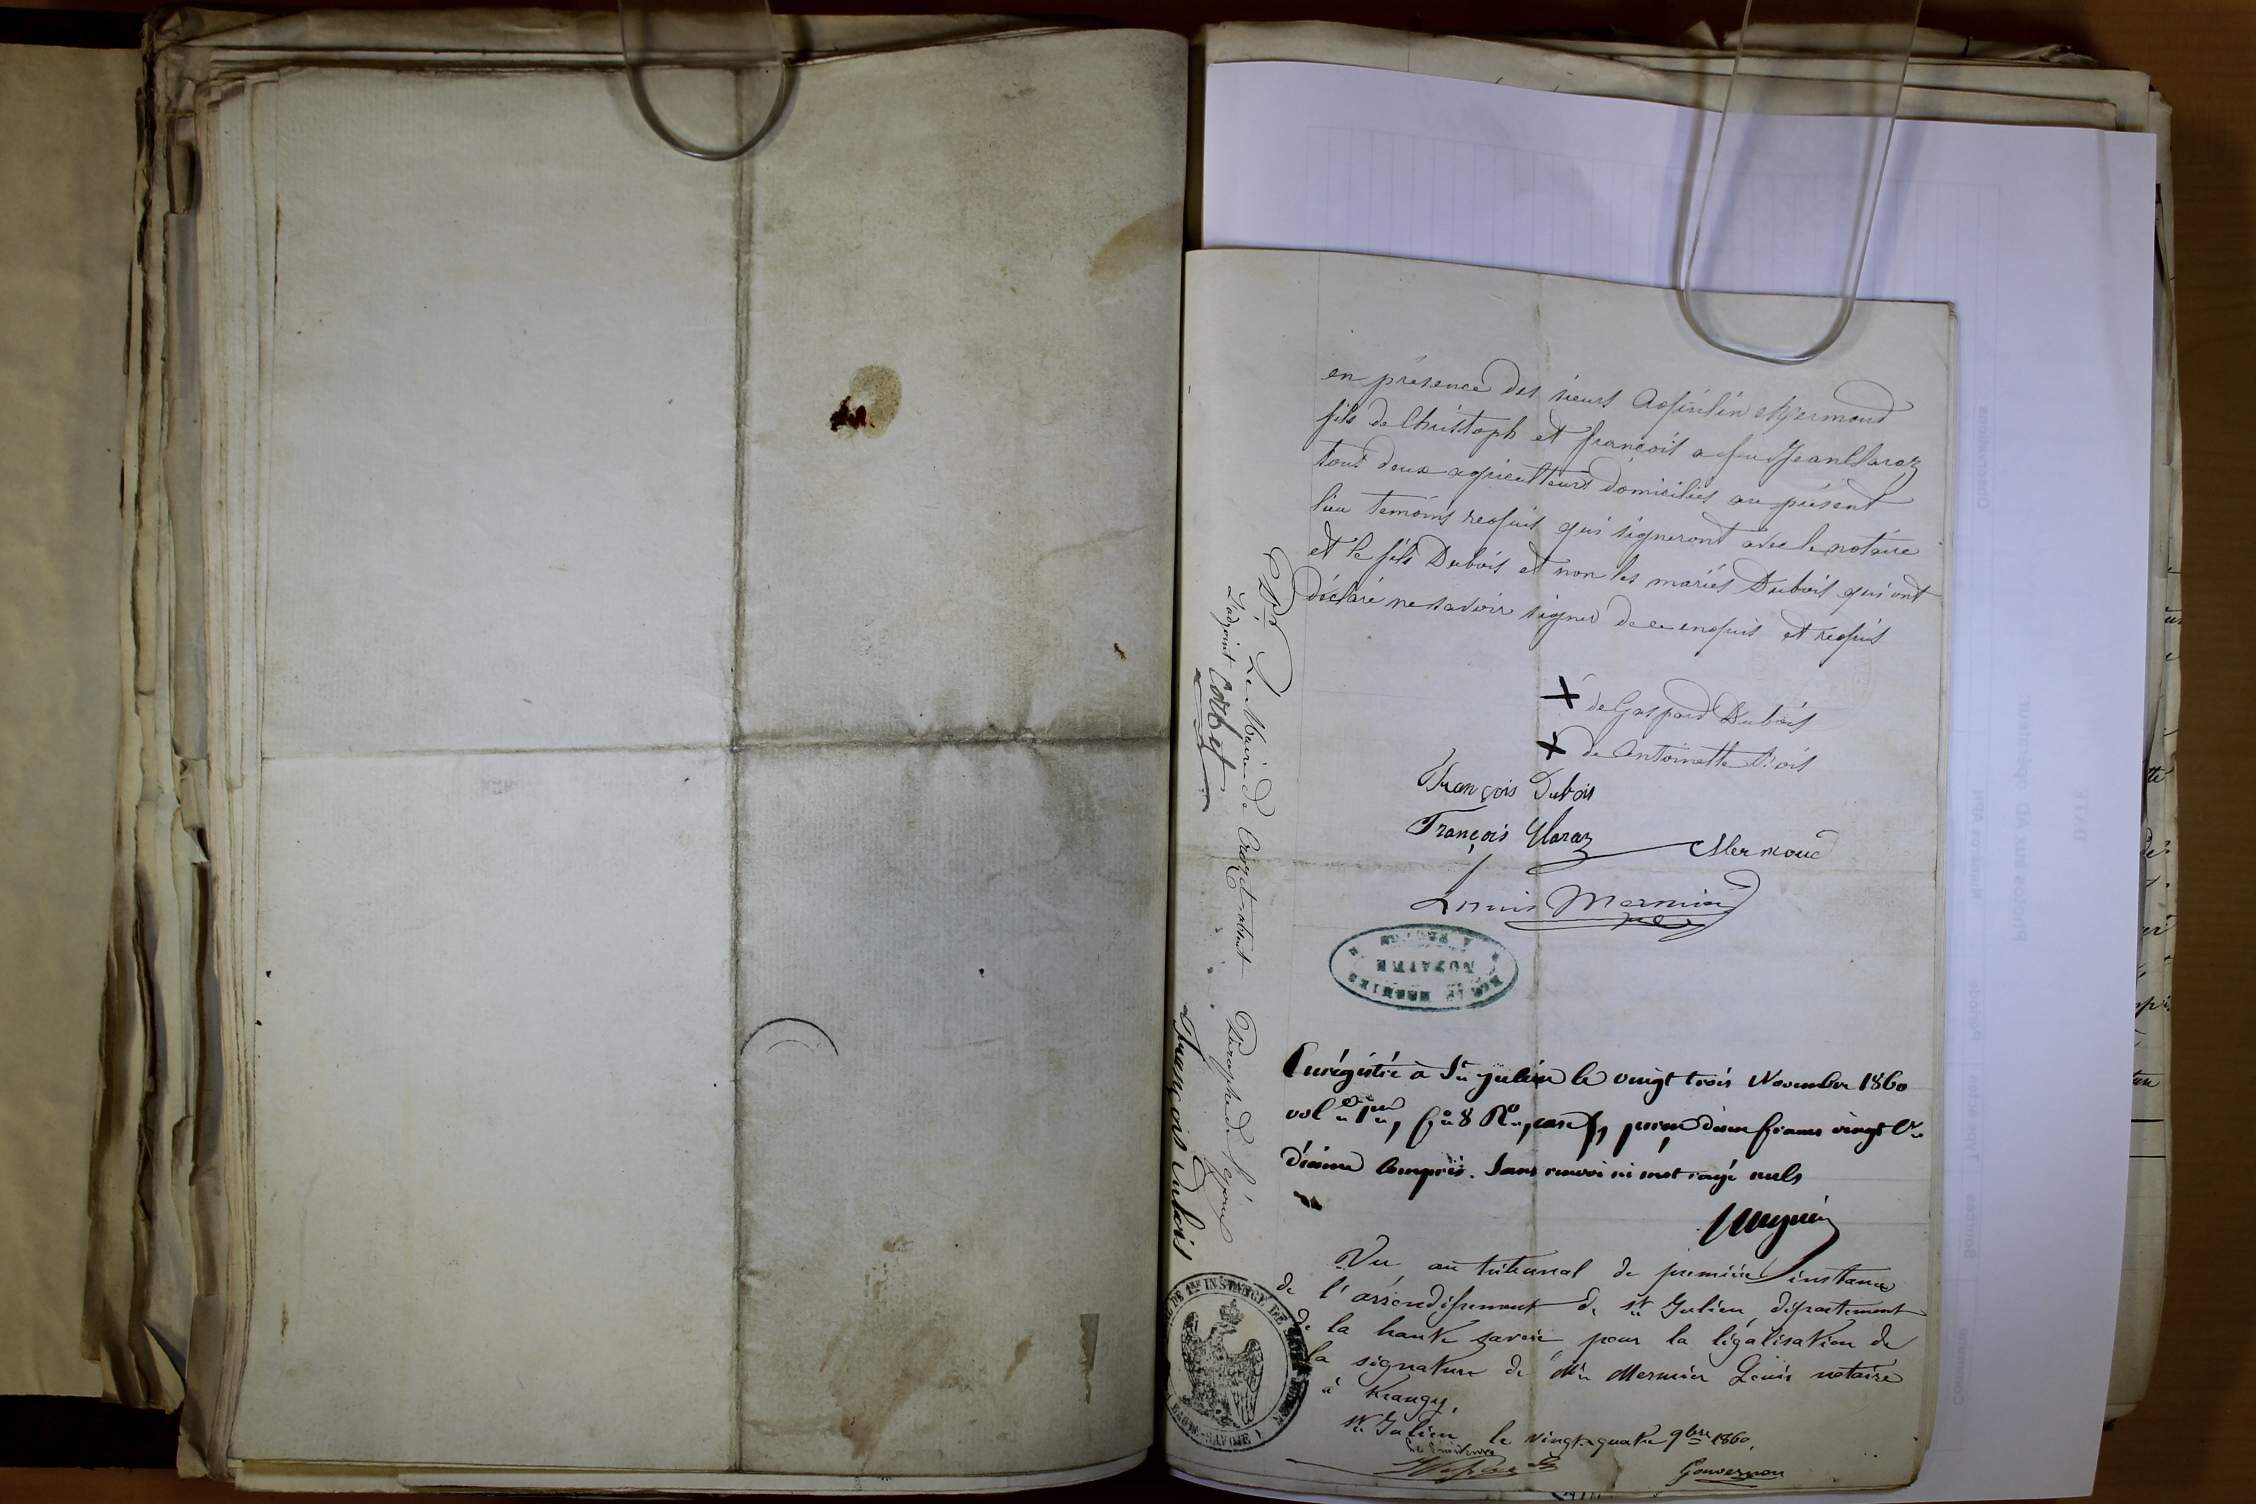 en présence des sieurs Mermoud
fils de Christoph et françois a feu Jean Claraz
tout deux agriculteurs domiciliés au présent
lieu temoins requis qui signeront avec le notaire
et le fils Dubois et non les mariés Dubois qui ont
déclaré ne savoir signer de ce enquis et requis
de Gaspard Dubois
de Antoinette
François Dubois
François Claraz Mermoud
Louis Mermier
NOTAIRE
Enrégistré à St Julien le vingt trois Novembre 1860
vol 1er, fo 8 Ro, case deux francs vingt
décime compris. Sans renvoi ni mot rayé nuls
Vu au tribunal de première instance
de l'arrondissement de St Julien, département
de la haute savoie pour la légalisation de
la signature de Me Mermier Louis notaire
à
St Julien le vingt quatre 9bre 1860.
Vu Le Maire de absent Paraphe de l'époux
L'adjoint
François Dubois
1re INSTANCE DE
HAUTE-SAVOIE